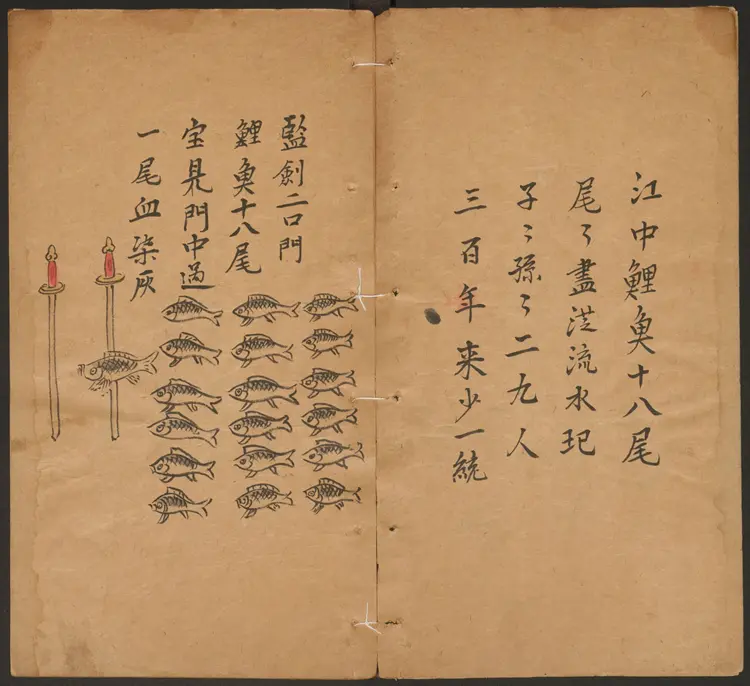 江中鯉魚十八尾
尾〻盡流水玘
子〻孫〻二九人
三百年来少一統
監劍二口門
鯉魚十八尾
宝見門中過
一尾血柒灰